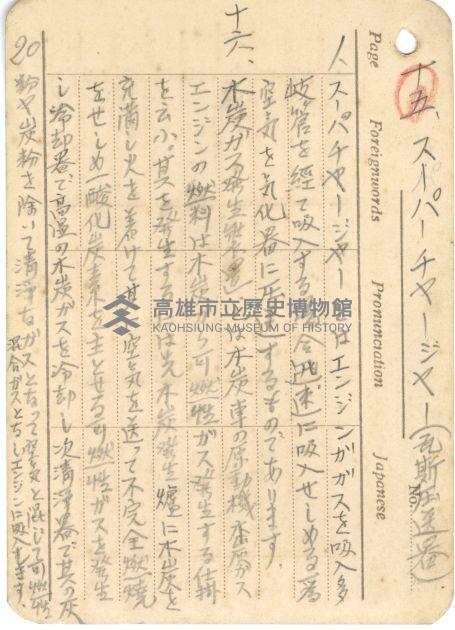 十五、スーパーチャージャー(瓦斯圧送器)
Page Foreignwords Pronunciation Japanese
No.
人スーパチャージャーとはエンジンがガスを吸入多
岐管を経て吸入する混合 速に吸入せしめる為
空気を気化器に圧送するものであります。
十六、木炭ガス発生 とは木炭車の原動機 ガス
エンジンの燃料は木炭 可燃性ガス発生する仕掛
を云ふ。其を発生する は先木炭発生爐に木炭を
充満し火を着けて 空気を送って不完全燃焼
をせしめ一酸化炭素を主とせる可燃性ガスを発生
し冷却器で高温の木炭ガスを冷却し次清浄器で其の灰
20
粉や炭粉を除いて清浄なガスとなって空気と混じて可燃性
混合ガスとなしエンジンに吸入します。
高雄市立歷史博物館
KAOHSIUNG MUSEUM OF HISTORY